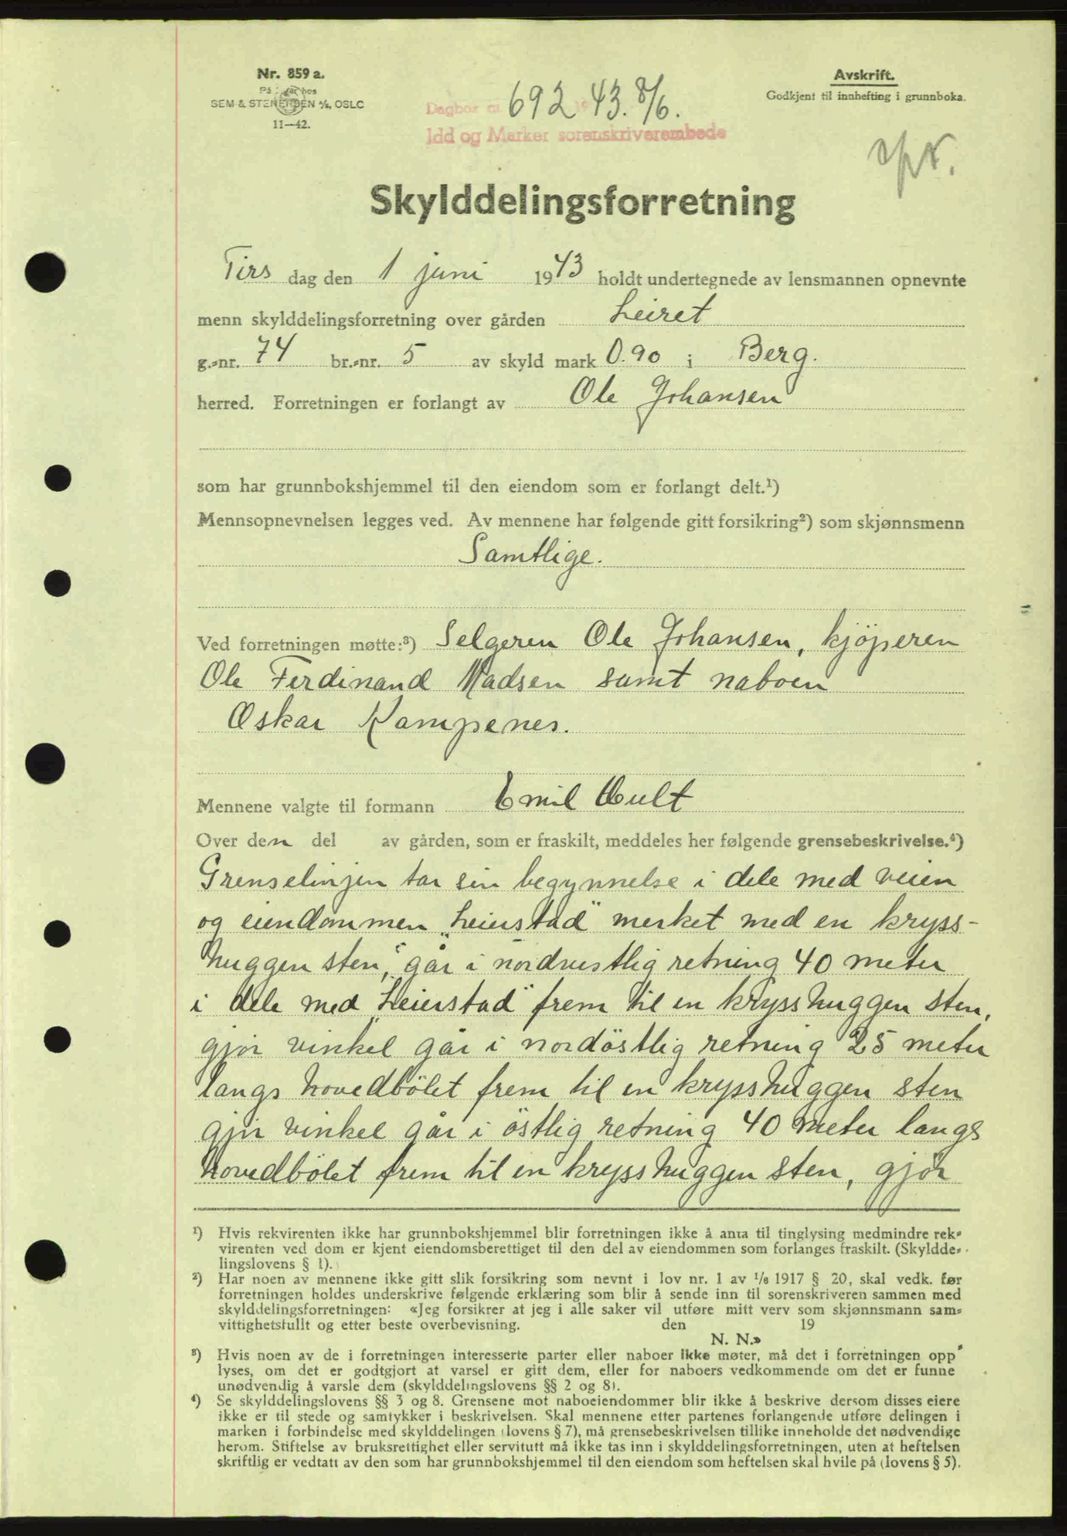 Nr. 859 a.
På lager hos
SEM & STENERSEN A/S, OSLO
11—42.
Avskrift.
Godkjent til innhefting i grunnboka.
Dagbok nr. 692 1943. 8/6.
Idd og Marker sorenskriverembede
Skylddelingsforretning
Tirs dag den 1 juni 1943 holdt undertegnede av lensmannen opnevnte
menn skylddelingsforretning over gården Leiret
g.-nr. 74 br.-nr. 5 av skyld mark 0.90 i Berg.
herred. Forretningen er forlangt av Ole Johansen
som har grunnbokshjemmel til den eiendom som er forlangt delt.¹)
Mennsopnevnelsen legges ved. Av mennene har følgende gitt forsikring²) som skjønnsmenn
Samtlige.
Ved forretningen møtte:³) Selgeren Ole Johansen, kjöperen
Ole Ferdinand Madsen samt naboen
Oskar Kampenes.
Mennene valgte til formann Emil Ault
Over den del av gården, som er fraskilt, meddeles her følgende grensebeskrivelse.⁴)
Grenselinjen tar sin begynnelse i dele med veien
og eiendommen „Leirstad" merket med en kryss-
huggen sten, går i nordvestlig retning 40 meter
i dele med „Leierstad" frem til en krysshuggen sten,
gjör vinkel går i nordöstlig retning 25 meter
langs hovedbölet frem til en krysshuggen sten
gjör vinkel går i östlig retning 40 meter langs
hovedbölet frem til en krysshuggen sten, gjör
¹) Hvis rekvirenten ikke har grunnbokshjemmel blir forretningen ikke å anta til tinglysing medmindre rek-
virenten ved dom er kjent eiendomsberettiget til den del av eiendommen som forlanges fraskilt. (Skyldde-
lingslovens § 1).
²) Har noen av mennene ikke gitt slik forsikring som nevnt i lov nr. 1 av 1/6 1917 § 20, skal vedk. før
forretningen holdes underskrive følgende erklæring som blir å sende inn til sorenskriveren sammen med
skylddelingsforretningen: «Jeg forsikrer at jeg i alle saker vil utføre mitt verv som skjønnsmann sam-
vittighetsfullt og etter beste overbevisning. den 19
N. N.»
³) Hvis noen av de i forretningen interesserte parter eller naboer ikke møter, må det i forretningen opp-
lyses, om det er godtgjort at varsel er gitt dem, eller for naboers vedkommende om det er funnet
unødvendig å varsle dem (skylddelingslovens §§ 2 og 8).
⁴) Se skylddelingslovens §§ 3 og 8. Grensene mot naboeiendommer blir ikke å beskrive dersom disses eiere
ikke er til stede og samtykker i beskrivelsen. Skal mennene etter partenes forlangende utføre delingen i
marken i forbindelse med skylddelingen (lovens § 7), må grensebeskrivelsen tillike inneholde det nødvendige
herom. Stiftelse av bruksrettighet eller servitutt må ikke tas inn i skylddelingsforretningen, uten at heftelsen
skriftlig er vedtatt av den som har grunnbokshjemmel til den eiendom som heftelsen skal hvile på (lovens § 5).